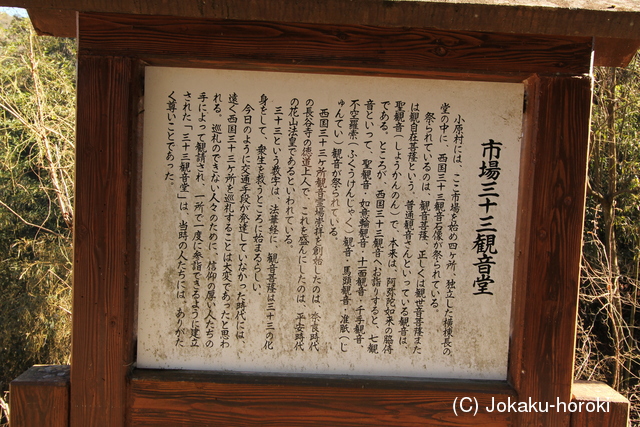 市場三十三観音堂
小原村には、ここ市場を始め四ヶ所、独立した横棟長の
堂の中に、西国三十三観音石像が祭られている。
祭られているのは、観音菩薩、正しくは観世音菩薩また
は観自在菩薩という。普通観音さんといっている観音は、
聖観音（しょうかんのん）で、本来は、阿弥陀如来の脇侍
である。ところが、西国三十三観音へお詣りすると、七観
音といって、聖観音・如意輪観音・十一面観音・千手観音・
不空羂索（ふくうけんじゃく）観音・馬頭観音・准胝（じ
ゅんてい）観音が祭られている。
西国三十三ヶ所観音霊場崇拝を創始したのは、奈良時代
の長谷寺の徳道上人で、これを盛んにしたのは、平安時代
の花山法皇であるといわれている。
三十三という数字は、法華経に、観音菩薩は三十三の化
身をして、衆生を救うところに始まるらしい。
今日のように交通手段が発達していなかった時代には、
遠く西国三十三ヶ所を巡礼することは大変であったと思わ
れる。巡礼のできない人々のために、信仰の厚い人たちの
手によって観請され、一所で一度に参詣できるように建立
された「三十三観音堂」は、当時の人たちには、ありがた
く尊いことであった。
(C) Jokaku-horoki